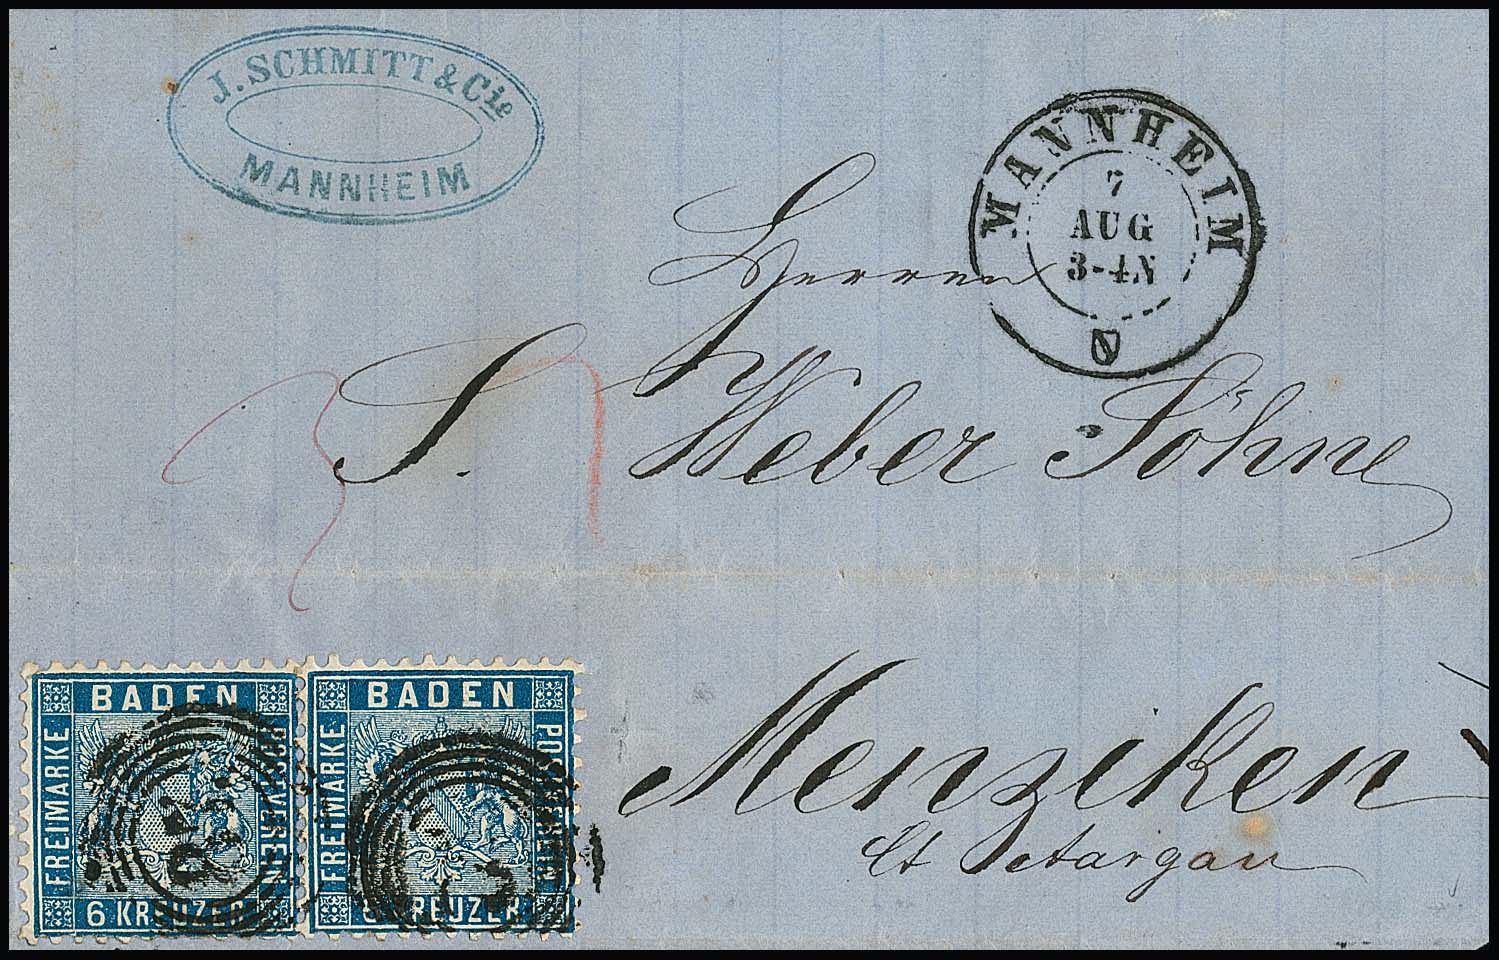 J. SCHMITT & Cie
MANNHEIM
MANNHEIM
7
AUG
3-4N
Herren
S. Weber Söhne
Menziken
Ct Aargau
BADEN
FREIMARKE
POSTVEREIN
6 KREUZER
BADEN
FREIMARKE
POSTVEREIN
6 KREUZER